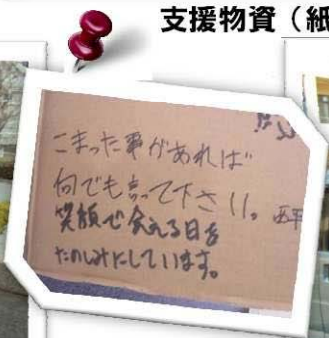 支援物資（紙
こまった事があれば
何でも言って下さい。
笑顔で会える日を
たのしみにしています。